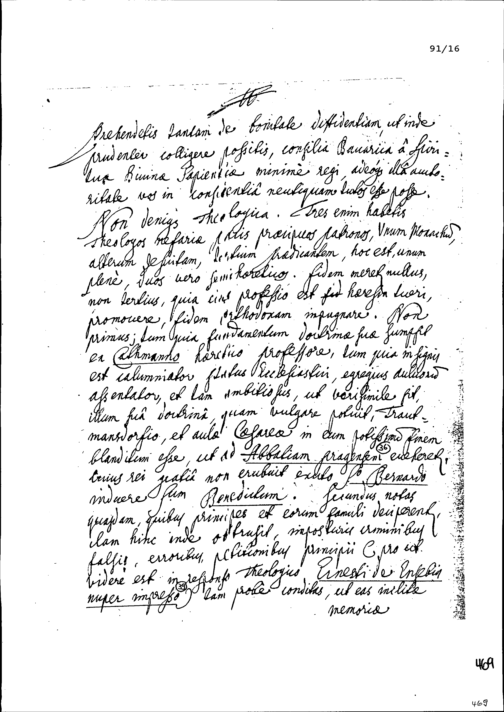 91/16
Prehendetis tantam de bonitate diffidentiam, ut inde
prudenter colligere possitis, consilia Bavarica à
Divina Sapientia minime regi, autho=
ritate vos in conscientia neutiquam tutos esse posse.
Non denique Theologica. Tres enim habetis
Theologos nefariæ pacis præcipuos patronos, Unum Monachum,
alterum Jesuitam, tertium prædicantem, hoc est, unum
plenè, duos vero semihæreticos. fidem meretur nullus,
non tertius, quia eius professio est hæresin tueri,
promovere, fidem orthodoxam impugnare. Non
primus; tum quia fundamentum doctrinæ suæ sumpsit
ex Calhmanno hæretico professore, tum quia insignis
est calumniator status Ecclesiastici, egregius
assentator, et tam ambitiosus, ut verisimile sit,
illum suâ doctrinâ, quam vulgare potuit, Traut=
mansdorfio, et aulæ Cæsareæ in eum potissimum finem
blanditum esse, ut ad Abbatiam pragensem eveheret,
cuius rei gratiâ non erubuit exuto S. Bernardo
induere Sum Benedictum. Secundus notas
quasdam, quibus principes et eorum famuli deciperent,
clam hinc inde obtrusit, imposturis criminibus
falsis, erroribus, petitionibus principii
videre est in responso Theologico Ernesti de Eusebiis
nuper impresso tam probe conditas, ut eas
memoria
469
469